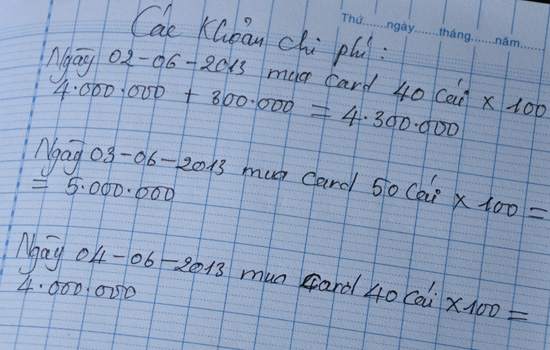 Thứ......ngày......tháng......năm......
Các khoản chi phí :
Ngày 02-06-2013 mua card 40 cái x 100
4.000.000 + 300.000 = 4.300.000
Ngày 03-06-2013 mua card 50 cái x 100 =
= 5.000.000
Ngày 04-06-2013 mua card 40 cái x 100 =
4.000.000